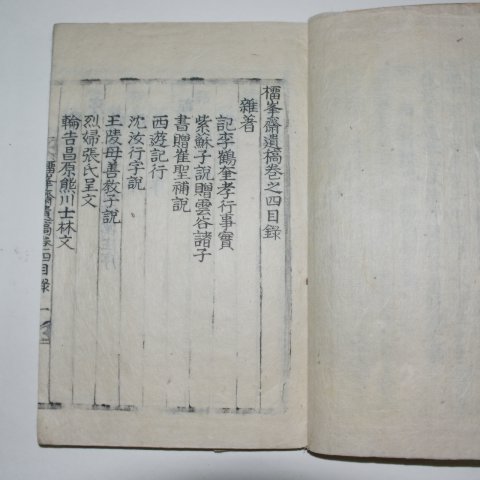 櫺峯齋遺稿卷之四目錄
雜著
記李鶴奎孝行事實
紫蘇子說贈雲谷諸子
書贈崔聖補說
西遊記行
沈汝行字說
王陵母善敎子說
烈婦張氏呈文
輪告昌原熊川士林文
齋遺稿卷四目錄 一